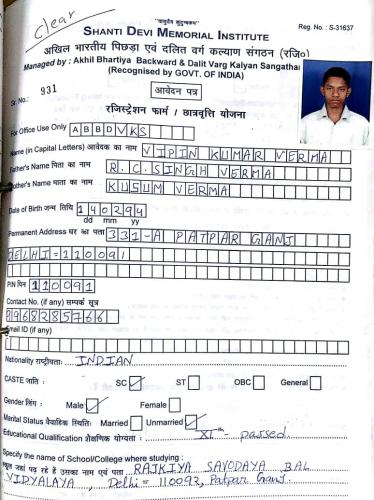 clear
"वसुधैव कुटुम्बकम्"
Reg. No. : S-31637
SHANTI DEVI MEMORIAL INSTITUTE
अखिल भारतीय पिछड़ा एवं दलित वर्ग कल्याण संगठन (रजि०)
Managed by : Akhil Bhartiya Backward & Dalit Varg Kalyan Sangathan
(Recognised by GOVT. OF INDIA)
Sr. No.: 931
आवेदन पत्र
रजिस्ट्रेशन फार्म / छात्रवृत्ति योजना
For Office Use Only ABBDVKS
Name (in Capital Letters) आवेदक का नाम VIPIN KUMAR VERMA
Father's Name पिता का नाम R.C.SINGH VERMA
Mother's Name माता का नाम KUSUM VERMA
Date of Birth जन्म तिथि 140294
dd mm yy
Permanent Address घर का पता 331-A PATPAR GANJ
DELHI=110091
PIN पिन 110091
Contact No. (if any) सम्पर्क सूत्र
9968285766
Email ID (if any)
Nationality राष्ट्रीयता: INDIAN
CASTE जाति : SC ST OBC General
Gender लिंग : Male Female
Marital Status वैवाहिक स्थिति: Married Unmarried
Educational Qualification शैक्षणिक योग्यता : XIth passed
Specify the name of School/College where studying :
स्कूल जहां पढ़ रहे हैं उसका नाम एवं पता RAJKIYA SAVODAYA BAL
VIDYALAYA, Delhi = 110092, Patpar Ganj.